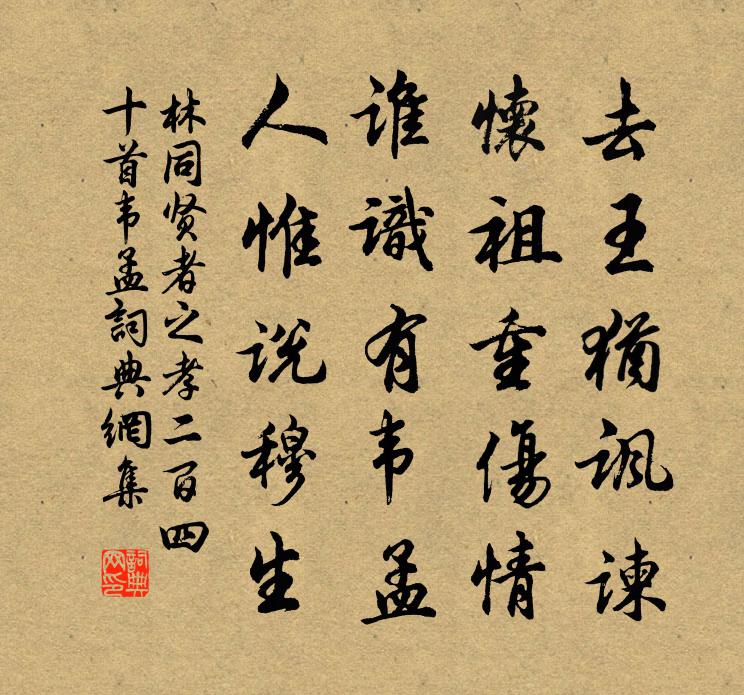 去王犹讽谏
懷祖重傷情
谁識有韦孟
人惟说穆生
林同贤者之孝二百四
十首韦孟詞典網集
詞典网印